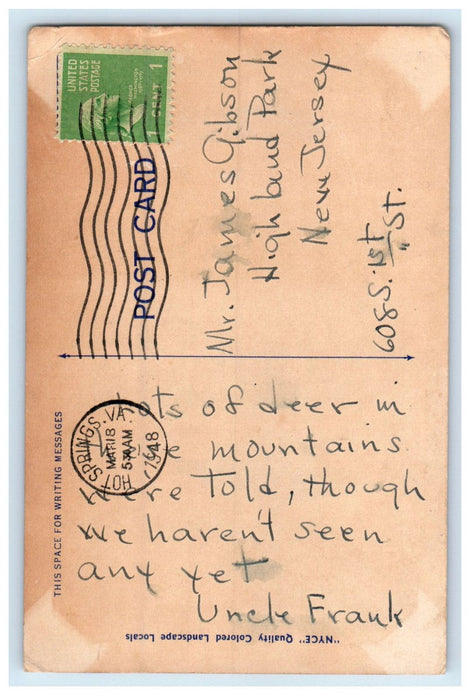 UNITED
STATES
POSTAGE
1 CENT 1
POST CARD
Mr. James Gibson
Highland Park
New Jersey
608 S. 1st St.
THIS SPACE FOR WRITING MESSAGES
HOT SPRINGS. VA.
MAR 18
5 30 AM
1948
Lots of deer in
the mountains
we're told, though
we haven't seen
any yet
Uncle Frank
"NYCE" Quality Colored Landscape Locals